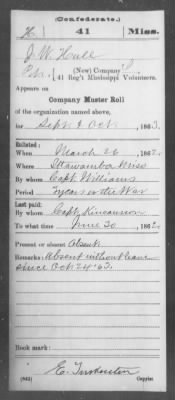 (Confederate.)
H 41 Miss.
J. W. Hall
Pvt., (New) Company C,
41 Reg't Mississippi Volunteers.
Appears on
Company Muster Roll
of the organization named above,
for Sept & Oct, 1863.
Enlisted:
When March 26, 1862.
Where Ittawamba Miss
By whom Capt. Williams
Period 3 years or the War
Last paid:
By whom Capt. Kincannon
To what time June 30, 1863.
Present or absent Absent
Remarks: Absent without leave
since Oct 24 '63.
Book mark:
E.
(642) Copyist.